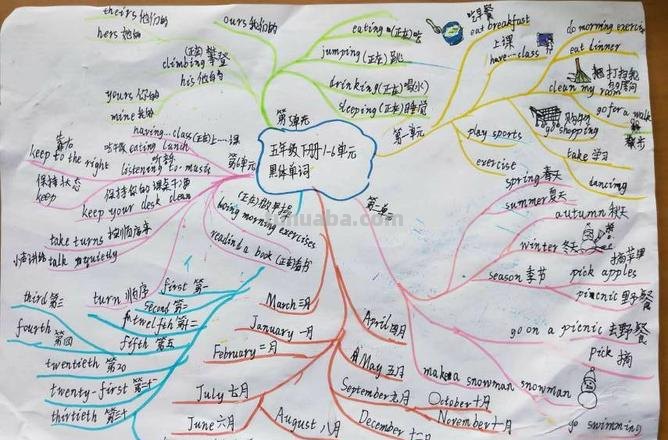 theirs 他们的
hers 她的
ours 我们的
climbing
his 他的
yours 你的
mine 我的
eating (正在)吃
jumping (正在)跳
drinking (正在)喝
sleeping (正在)睡觉
第5单元
吃早餐
eat breakfast
上课
have...class
do morning exercise
eat
打扫
clean my room
的房间
go for a walk
散步
购物
go shopping
take 学习
dancing
play sports
exercise
第一单元
五年级下册1-6单元
黑体单词
having...class (正在)上…课
靠右
keep to the right
eating lunch
听音乐
listening to music
第6单元
保持状态
keep
保持你的课桌干净
keep your desk clean
take turns 按顺序来
talk quietly
turn 顺序
(正在)做早操
doing morning exercises
reading a book (正在)读书
tuhuaba.com
第二单元
spring 春天
summer 夏天
autumn 秋天
winter 冬天
season 季节
摘苹果
pick apples
picnic 野餐
go on a picnic 去野餐
pick 摘
make a snowman
snowman
go swimming
first 第一
second 第二
third 第三
twelfth 第十二
fourth 第四
fifth 第五
twentieth 第20
twenty-first 第二十一
thirtieth 第三十
March 三月
January 一月
February 二月
April 四月
May 五月
July 七月
June 六月
August 八月
September 九月
October 十月
November 十一月
December 十二月